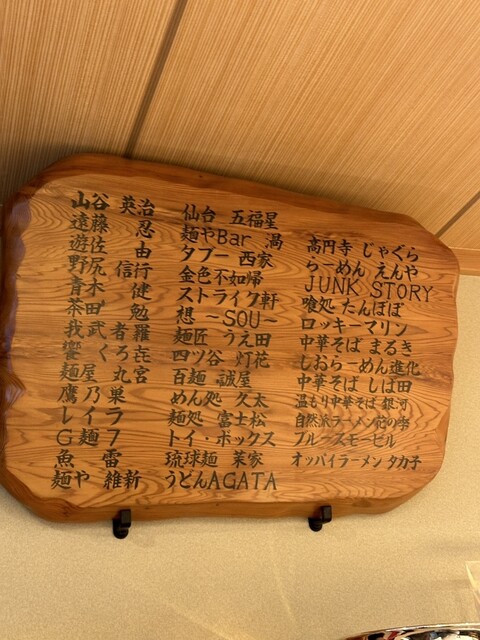 山谷 英治
遠藤 忍
遊佐 由
野尻 信行
青木 健
茶田 勉
我武者羅
饗 くろ㐂
麺屋 丸宮
鷹乃巣
レイラ
G麺7
魚雷
麺や 維新
仙台 五福星
麺やBar 渦
タブー 西家
金色不如帰
ストライク軒
想 ~SOU~
麺匠 うえ田
四ツ谷 灯花
百麺 誠屋
めん処 久太
麺処 富士松
トイ・ボックス
琉球麺 茉家
うどんAGATA
高円寺 じゃぐら
らーめん えんや
JUNK STORY
喰処 たんぽぽ
ロッキーマリン
中華そば まるき
しおらーめん進化
中華そば しば田
温もり中華そば 銀河
自然派ラーメン花の季
ブルースモービル
オッパイラーメン タカ子